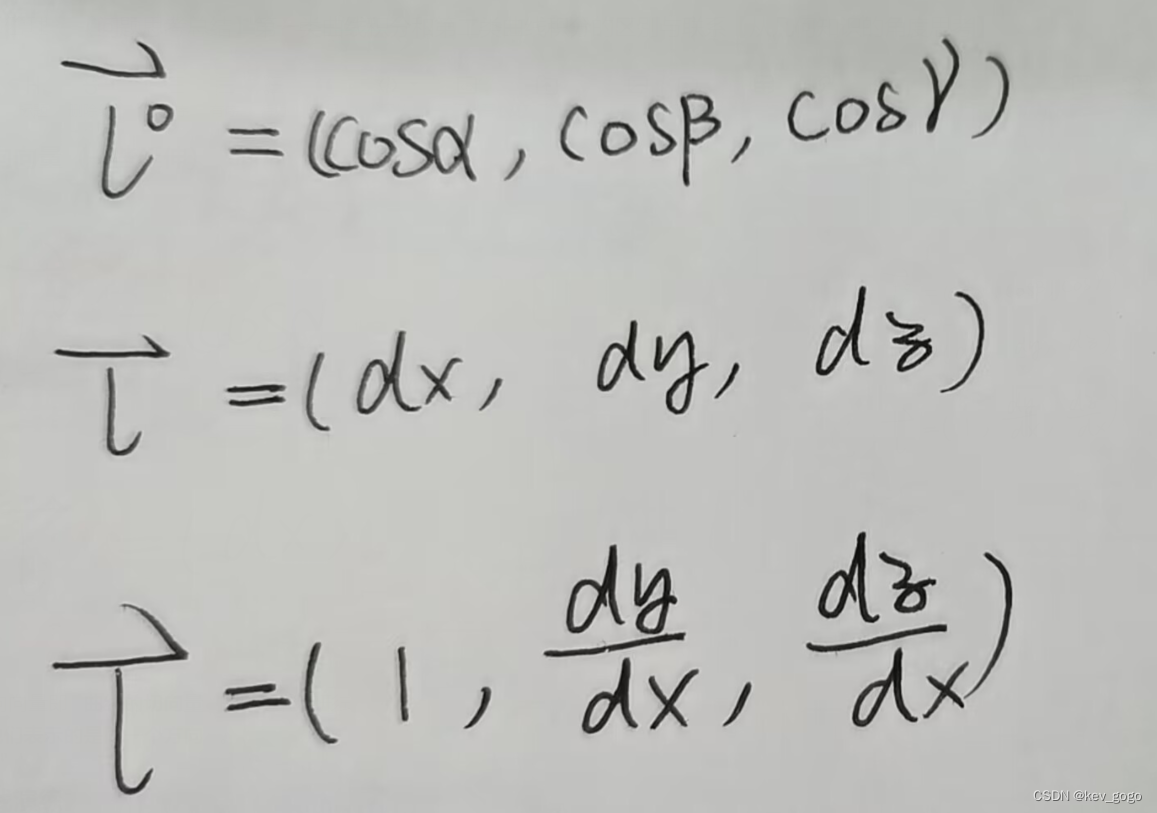 $\vec{l^0} = (\cos\alpha, \cos\beta, \cos\gamma)$
$\vec{l} = (dx, dy, dz)$
$\vec{l} = (1, \frac{dy}{dx}, \frac{dz}{dx})$
CSDN @kev_gogo